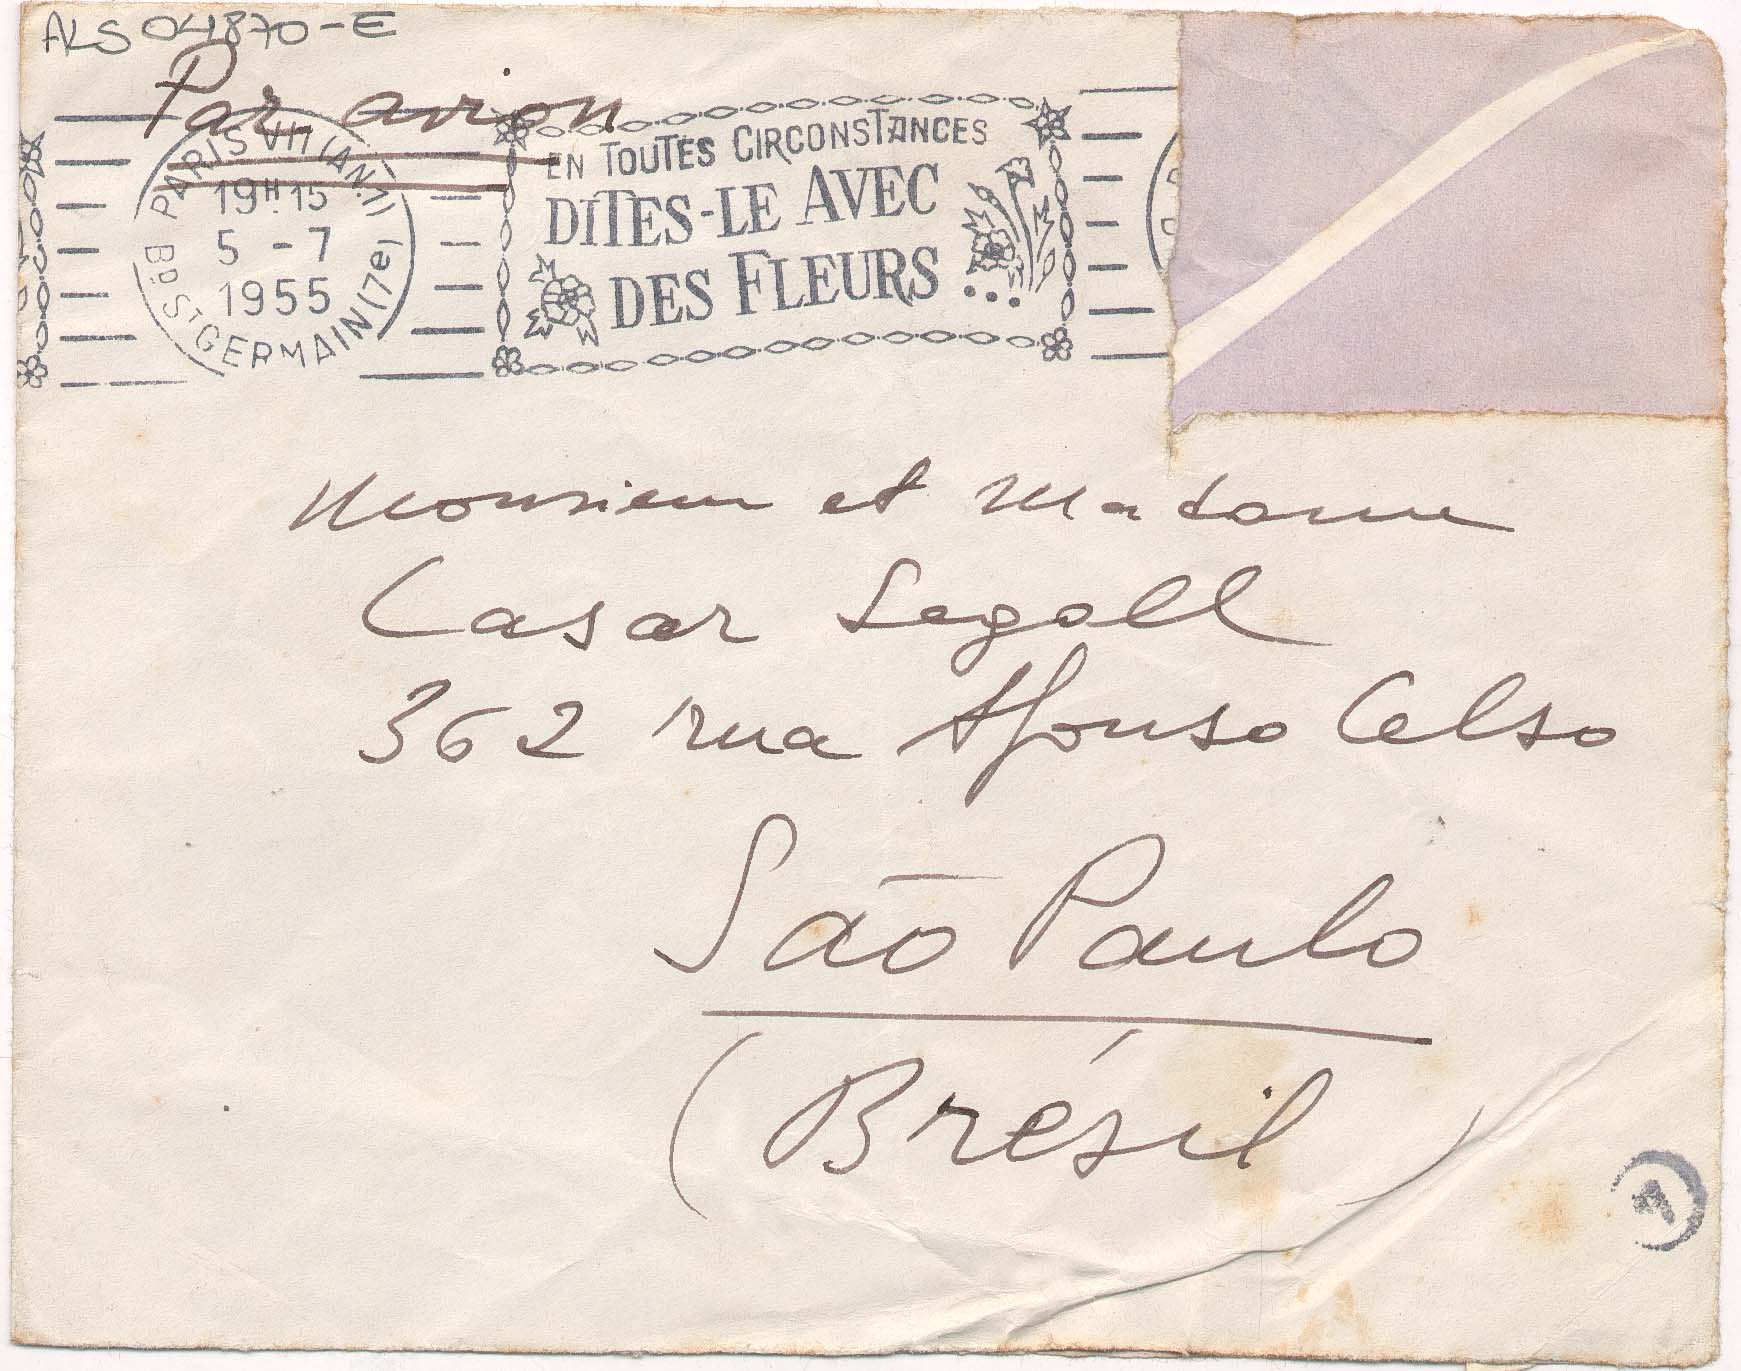 ALS 04870-E
Par avion
PARIS VII (AN. VII)
19H15
5 -7
1955
Bd St GERMAIN (7e)
EN TOUTES CIRCONSTANCES
DITES-LE AVEC
DES FLEURS...
Monsieur et Madame
Casar Segall
362 rua Afonso Celso
São Paulo
(Brésil)